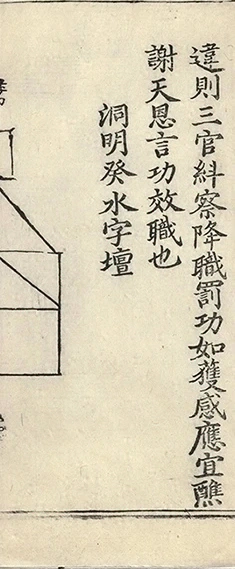 違則三官糾察降職罰功如獲感應宜醮
謝天恩言功效職也
洞明癸水字壇